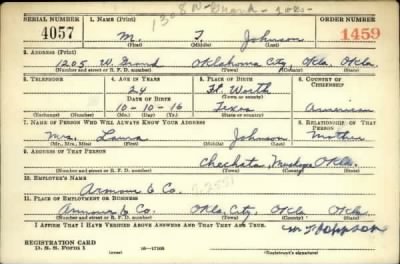 SERIAL NUMBER 1. NAME (Print) ORDER NUMBER
1308 N- Grand -
4057 M. T. Johnson 1459
(First) (Middle) (Last)
2. ADDRESS (Print)
1205 W. Grand Oklahoma City, Okla. Okla.
(Number and street or R. F. D. number) (Town) (County) (State)
3. TELEPHONE 4. AGE IN YEARS 5. PLACE OF BIRTH 6. COUNTRY OF CITIZENSHIP
24 Ft. Worth
DATE OF BIRTH (Town or county)
10-10-16 Texas American
(Exchange) (Number) (Mo.) (Day) (Yr.) (State or country)
7. NAME OF PERSON WHO WILL ALWAYS KNOW YOUR ADDRESS 8. RELATIONSHIP OF THAT PERSON
Mrs. Laura Johnson Mother
(Mr., Mrs., Miss) (First) (Middle) (Last)
9. ADDRESS OF THAT PERSON
Chechata, Okla.
(Number and street or R. F. D. number) (Town) (County) (State)
10. EMPLOYER'S NAME
Armour & Co.
11. PLACE OF EMPLOYMENT OR BUSINESS
Armour & Co. Okla. City, Okla Okla.
(Number and street or R. F. D. number) (Town) (County) (State)
I AFFIRM THAT I HAVE VERIFIED ABOVE ANSWERS AND THAT THEY ARE TRUE.
M T Johnson
REGISTRATION CARD
D. S. S. Form 1 16-17105 (Registrant's signature)